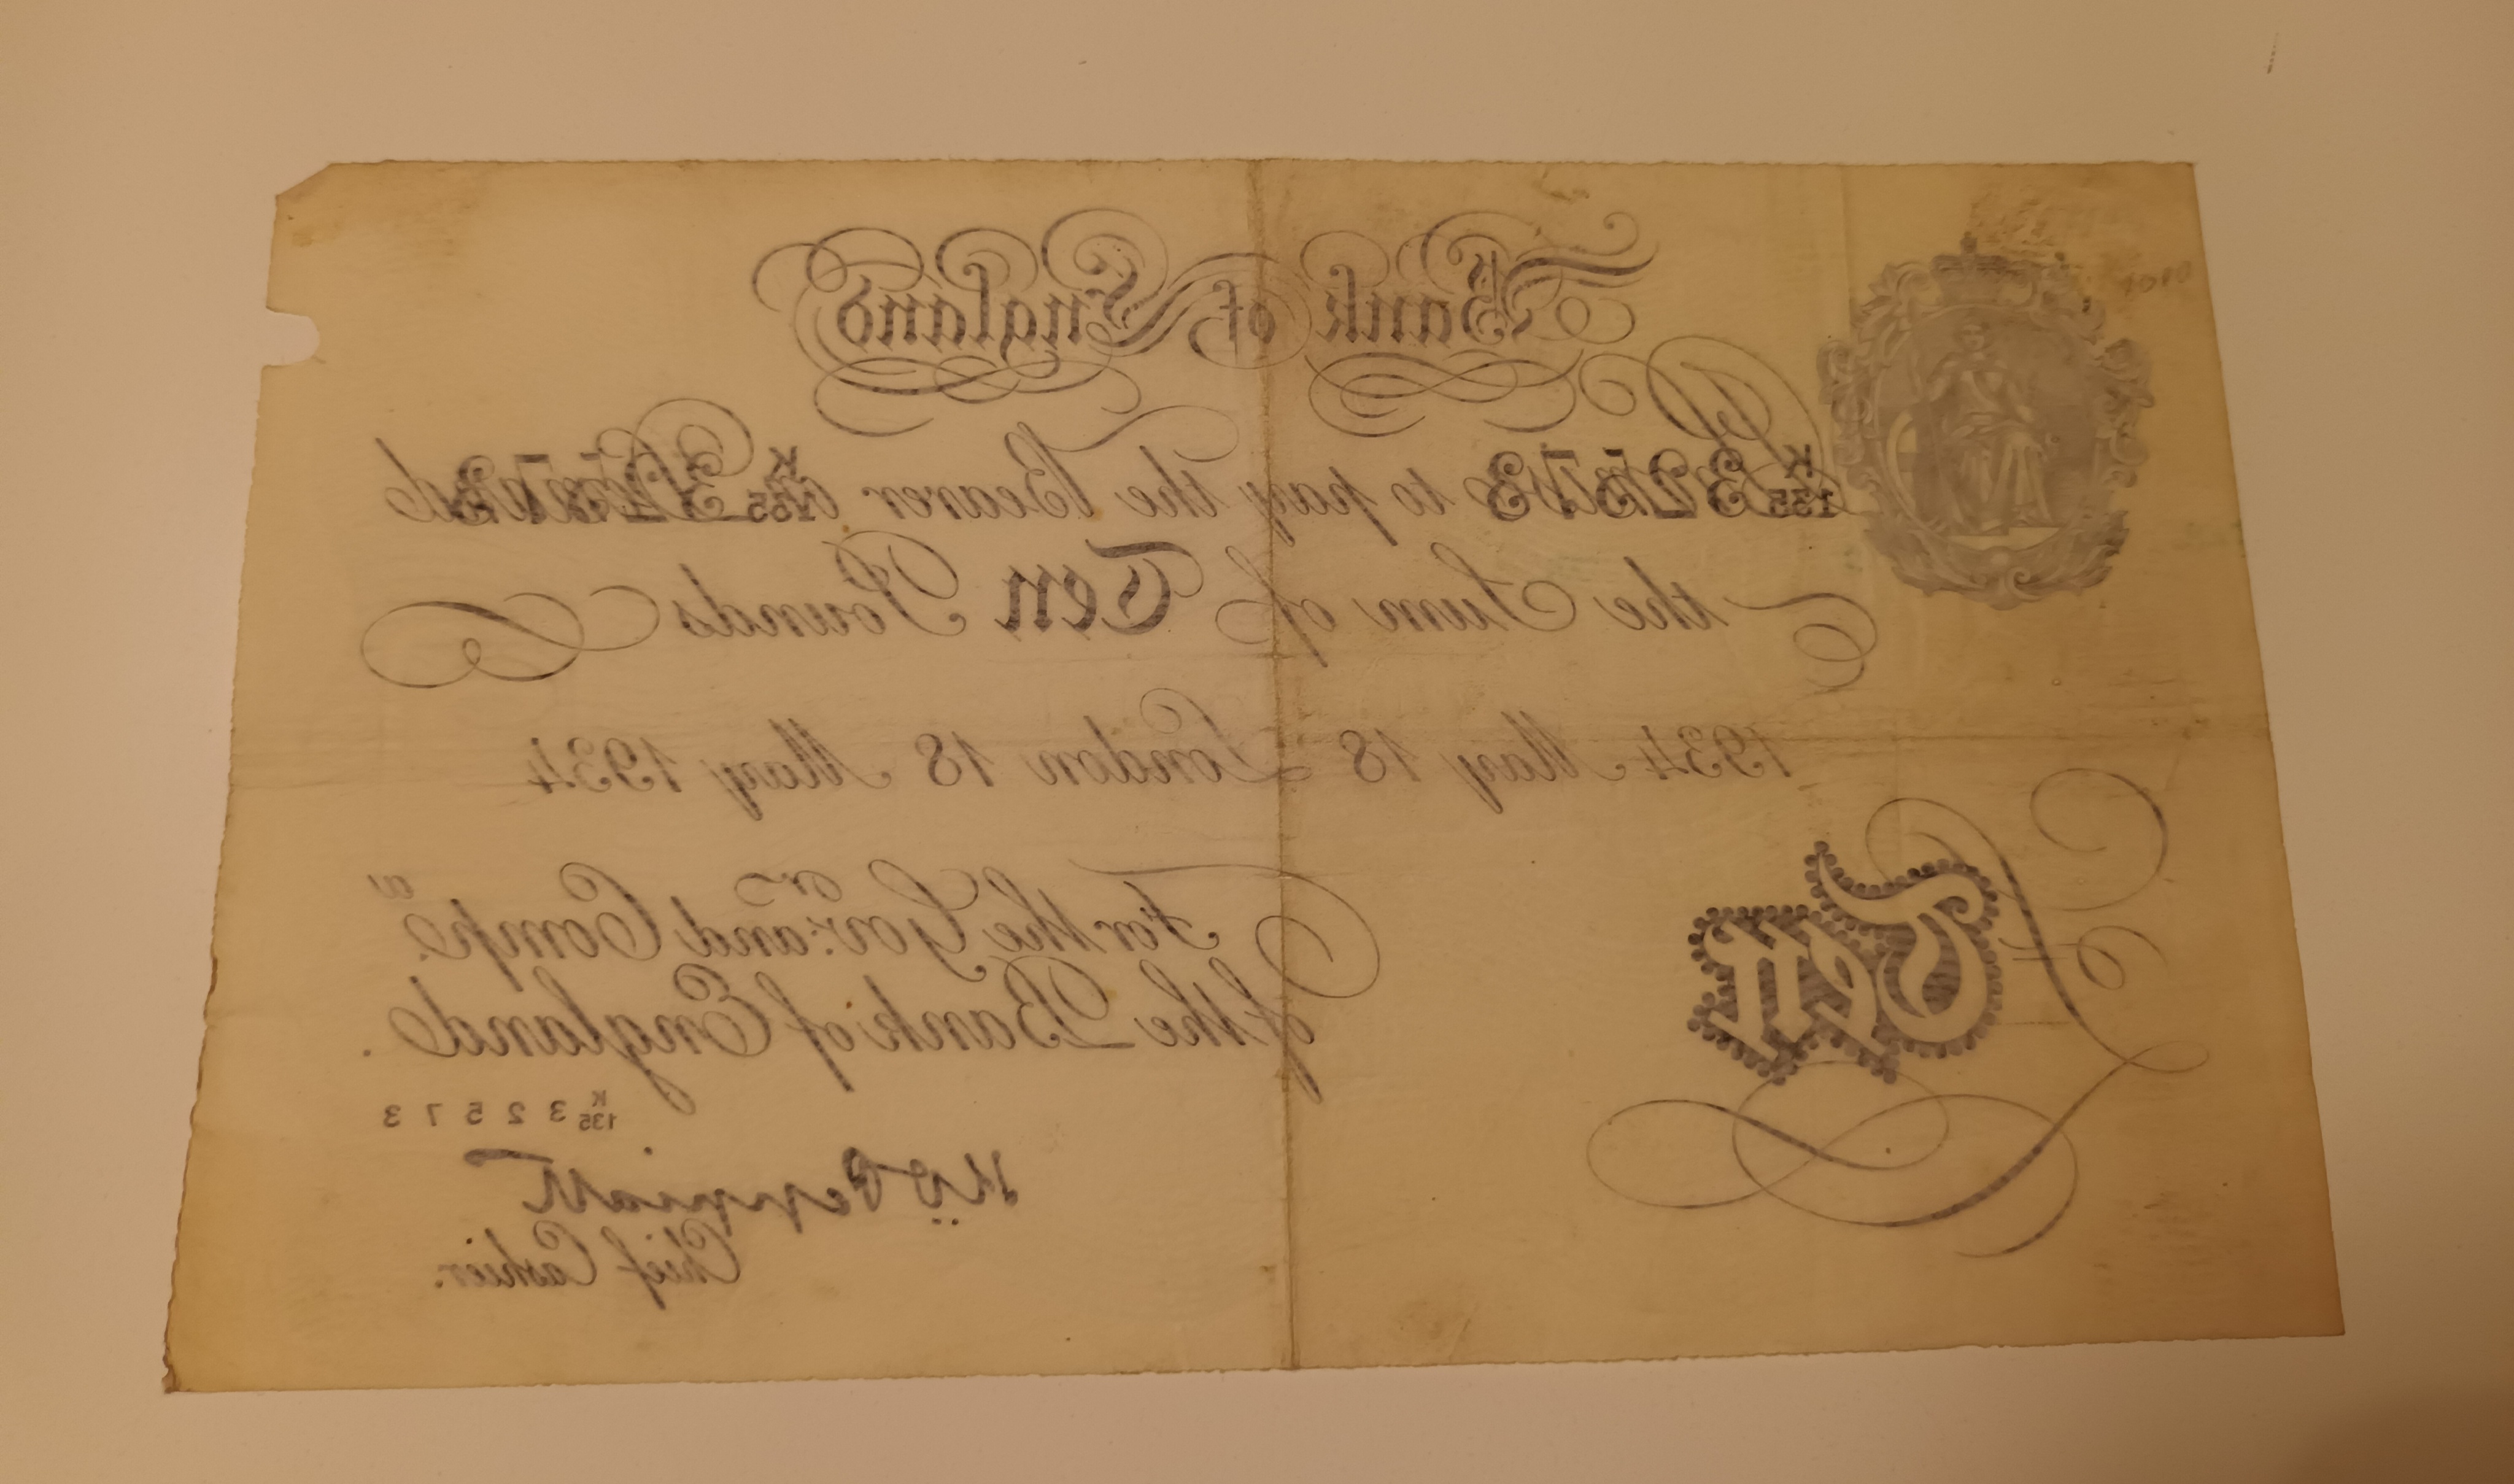 Bank of England
K 135 32573 to pay the Bearer on K 135 32573 Demand
the Sum of Ten Pounds
1934 May 18 London 18 May 1934
For the Gov:rs and Comp.a
of the Bank of England.
Ten
K 135 32573
K O Peppiatt
Chief Cashier.